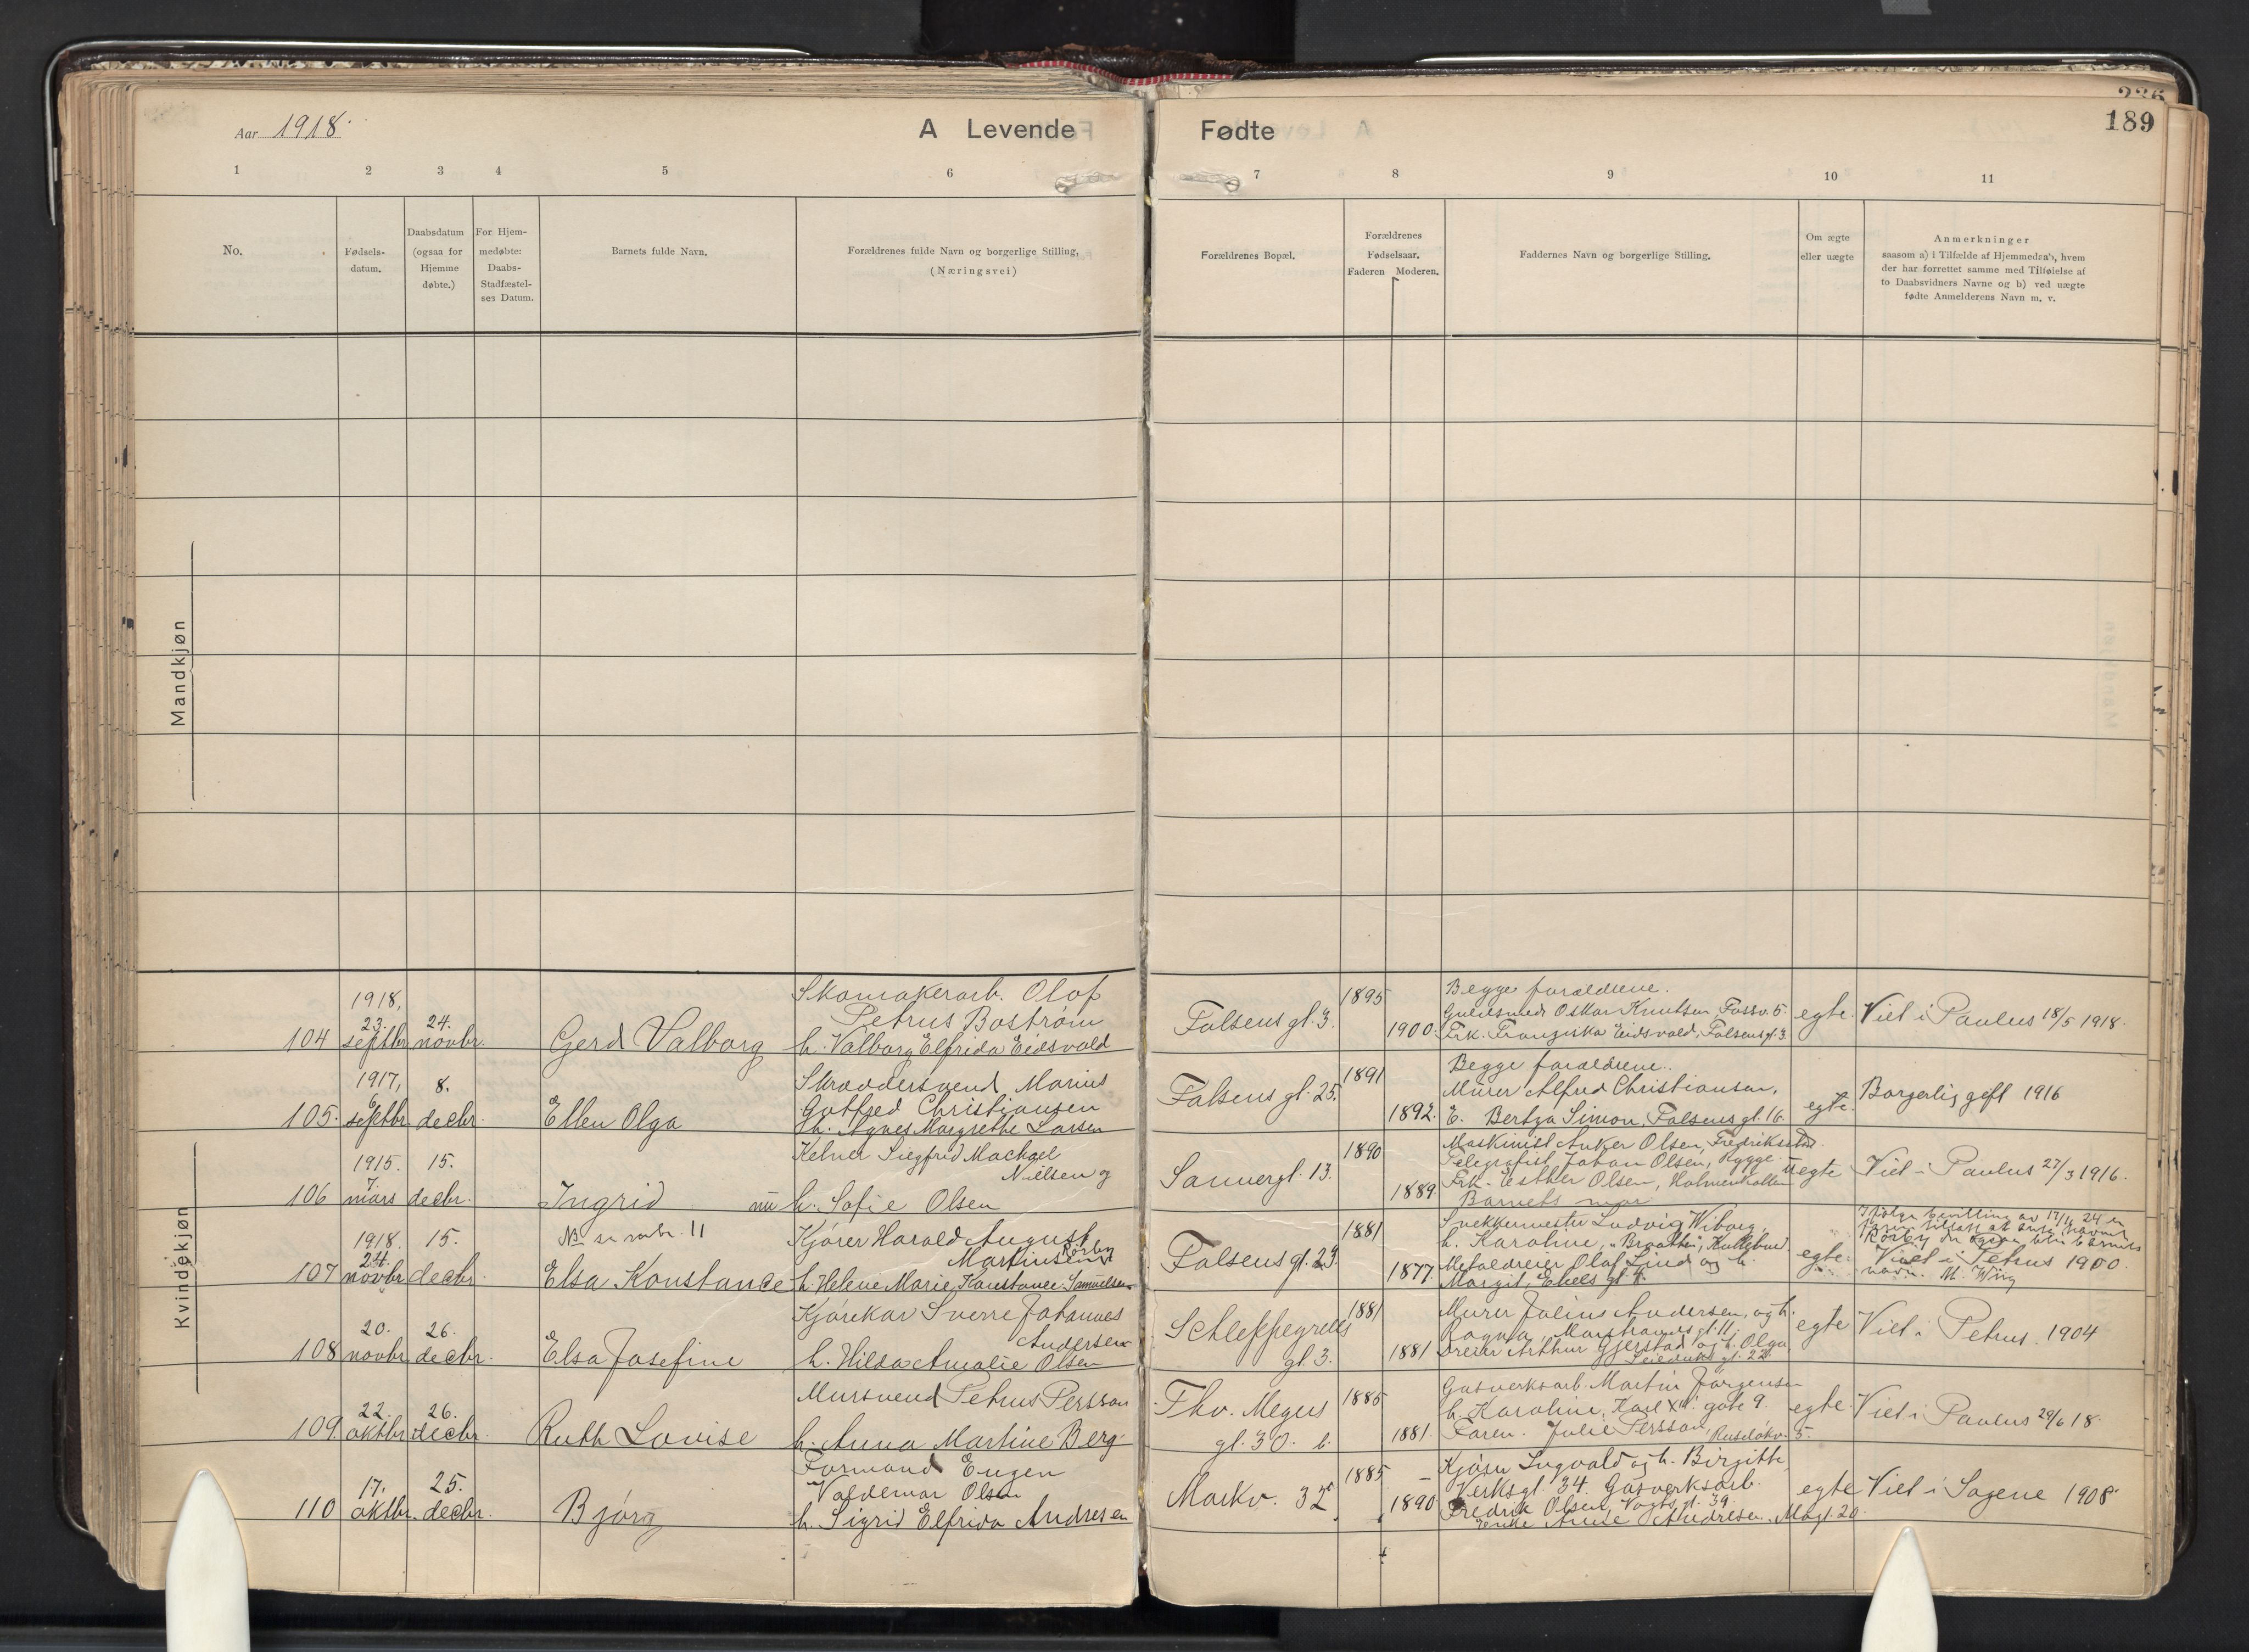 Aar 1918.
A Levende
Fødte
236
189
1 2 3 4 5 6
7 8 9 10 11
No.
Fødsels-
datum.
Daabsdatum
(ogsaa for
Hjemme
døbte.)
For Hjem-
medøbte:
Daabs-
Stadfæstel-
ses Datum.
Barnets fulde Navn.
Forældrenes fulde Navn og borgerlige Stilling,
(Næringsvei)
Forældrenes Bopæl.
Forældrenes
Fødselsaar.
Faderen Moderen.
Faddernes Navn og borgerlige Stilling.
Om ægte
eller uægte
Anmerkninger
saasom a) i Tilfælde af Hjemmedaab, hvem
der har forrettet samme med Tilføielse af
to Daabsvidners Navne og b) ved uægte
fødte Anmelderens Navn m. v.
Mandkjøn
Kvindekjøn
104
1918,
23.
septbr.
24.
novbr.
Gerd Valborg
Skomakerarb. Olof
Petrus Boström
h. Valborg Elfrida Eidsvold
Falsens gt. 3.
1895
1900.
Begge forældrene.
Guldsmed Oskar Knutsen Fossv. 5.
Frk. Franziska Eidsvold, Falsensgt. 3
egte.
Viet i Paulus 18/5 1918.
105.
1917,
6.
septbr.
8.
decbr.
Ellen Olga
Skræddersvend Marius
Gotfred Christiansen
h. Agnes Margrethe Larsen
Falsens gt. 25.
1891
1892.
Begge forældrene.
Murer Alfred Christiansen,
E. Bertza Simon, Falsens gt. 16.
egte.
Borgerlig gift 1916
106
1915.
7.
mars
15.
decbr.
Ingrid
Kelner Siegfred Machael
Nielsen og
nu h. Sofie Olsen
Sannergt. 13.
1890
1889.
Maskinist Anker Olsen, Fredriksstad.
Telegrafist Johan Olsen, Rygge.
Frk. Esther Olsen, Holmenkollen
Barnets mor
uegte
Viet i Paulus 27/3 1916.
107
1918.
24.
novbr.
15.
decbr.
NB se rubr. 11
Elsa Konstance
Kjører Harald August
Martinsen Rørby
h. Helene Marie Konstance Samuelsen
Falsens gt. 23.
1881
1877.
Snekkermester Ludvig Wiborg,
h. Karoline, "Braathen",
Metaldreier Olaf Lind og h.
Margit, Ekels gt. 4.
egte.
Ifølge bevilling av 17/4 24 er
Rørby
Viet i Petrus 1900.
navn. M. Wiig
108
20.
novbr.
26.
decbr.
Elsa Josefine
Kjørekar Sverre Johannes
Andersen
h. Hilda Amalie Olsen
Schleppegrells
gt. 3.
1881
1881
Murer Julius Andersen, og h.
Ragna, Marstrands gt. 11,
Dreier Arthur Gjerstad og h. Olga
Seilduks gt. 22.
egte
Viet i Petrus. 1904
109.
22.
oktbr.
26.
decbr.
Ruth Lovise
Mursvend Petrus Persson
h. Anna Martine Berg
Thv. Meyers
gt. 30. b.
1885
1881.
Gasverksarb. Martin Jørgensen
h. Karoline, Karl XII. gate 9.
Faren. Julie Persson, Ruseløkv. 5.
egte.
Viet i Paulus 29/6 18.
110
17.
oktbr.
25.
decbr.
Bjørg
Formand Eugen
Valdemar Olsen
h. Sigrid Elfrida Andresen
Markv. 32
1885
1890
Kjøsn Ingvald og h. Birgitte,
Verksgt. 34. Gasverksarb.
Fredrik Olsen, Vogts gt. 39.
Enke Anne Andresen, Mogt. 20.
egte
Viet i Sagene 1908.